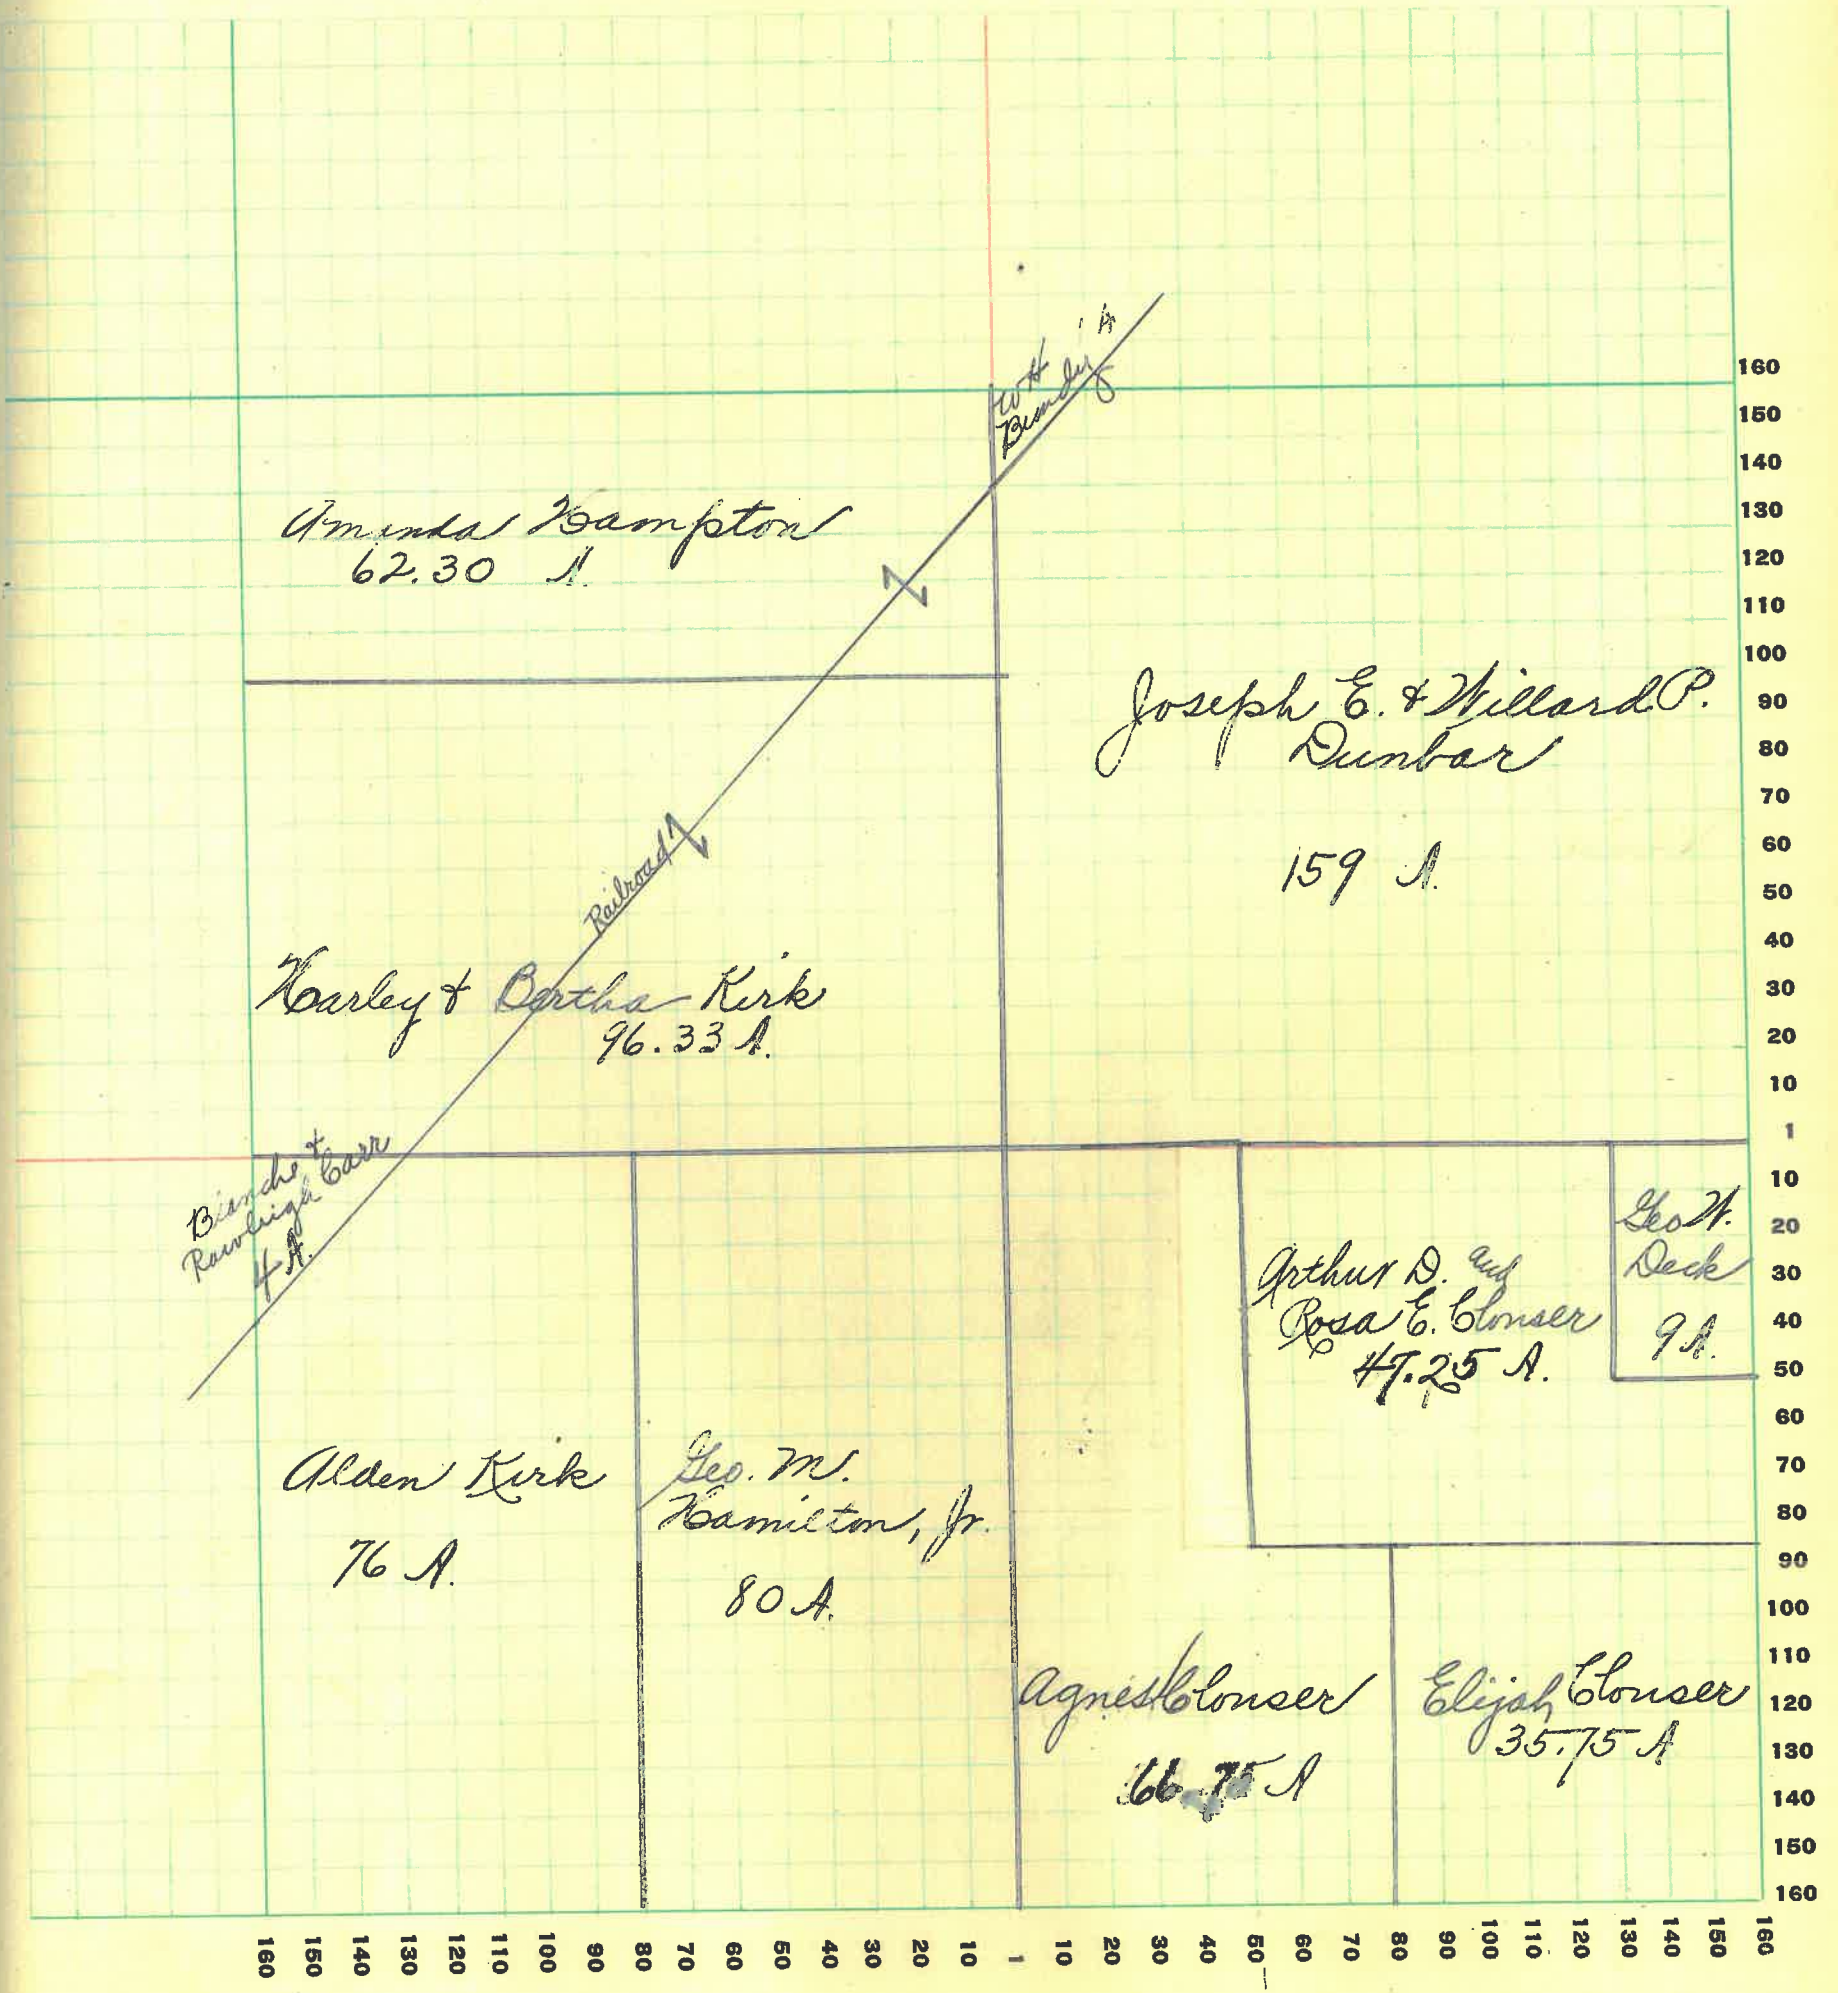 W H
Bundy
1 A
Amanda Hampton
62.30 A.
Joseph E. & Willard P.
Dunbar
159 A.
Railroad
Harley & Bertha Kirk
96.33 A.
Blanche &
Rawleigh Carr
4 A.
Geo W.
Deck
9 A.
Arthur D. and
Rosa E. Clouser
47.25 A.
Alden Kirk
76 A.
Geo. M.
Hamilton, Jr.
80 A.
Agnes Clouser
66.75 A
Elijah Clouser
35.75 A
160
150
140
130
120
110
100
90
80
70
60
50
40
30
20
10
1
10
20
30
40
50
60
70
80
90
100
110
120
130
140
150
160
160 150 140 130 120 110 100 90 80 70 60 50 40 30 20 10 1 10 20 30 40 50 60 70 80 90 100 110 120 130 140 150 160